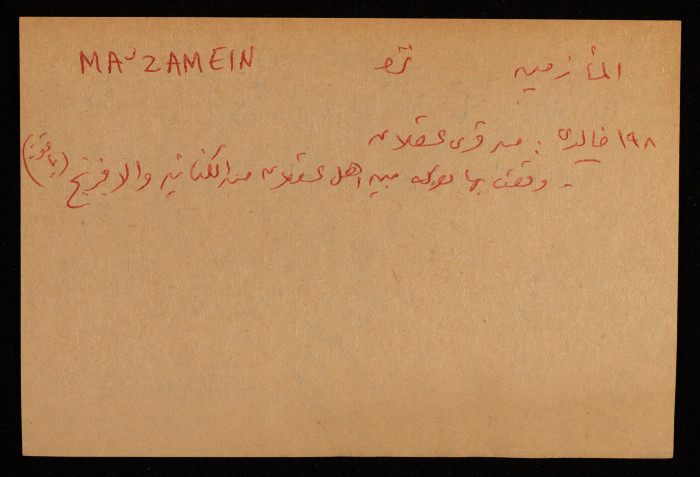 MA'ZAMEIN المأزمين
١٩٨ خالدي : من قرى عسقلان
- وقعت بها معركة بين اهل عسقلان من الكنانية والافرنج (ياقوت)